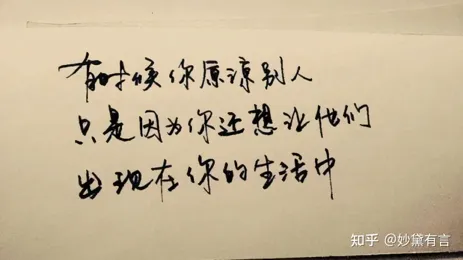 有时候你原谅别人
只是因为你还想让他们
出现在你的生活中
知乎 @妙黛有言